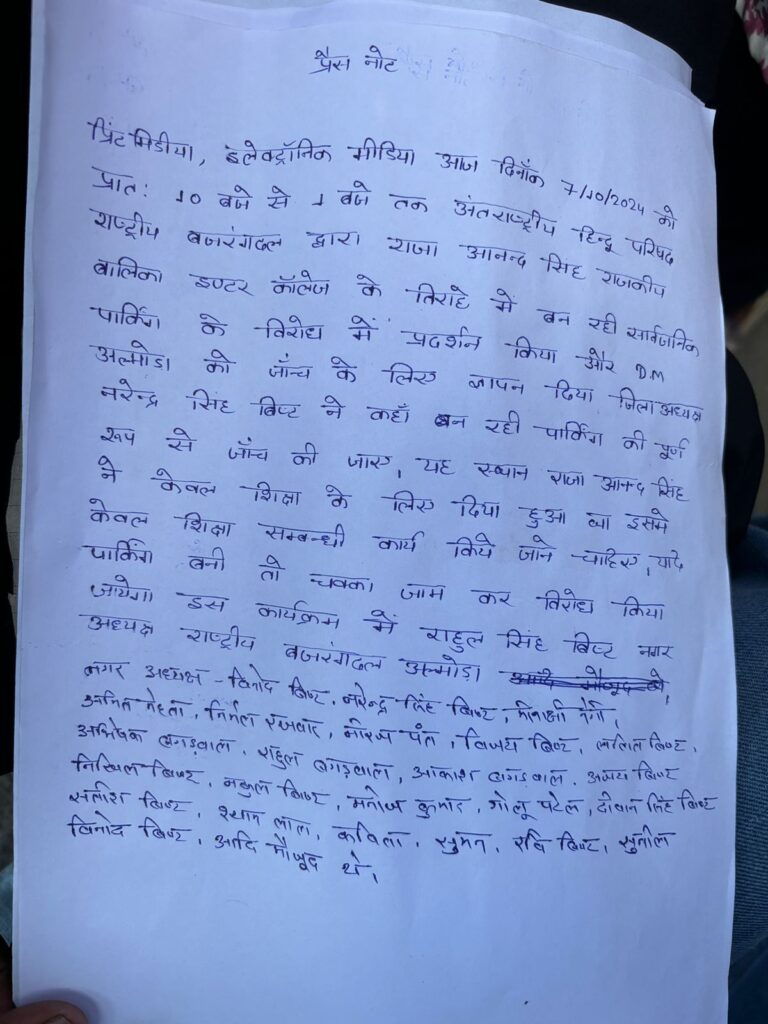 प्रैस नोट
प्रिंट मिडीया, इलेक्ट्रॉनिक मीडिया आज दिनाँक 7/10/2024 को
प्रातः 10 बजे से 1 बजे तक अंतराष्ट्रीय हिन्दू परिषद
राष्ट्रीय बजरंगदल द्वारा राजा आनन्द सिंह राजकीय
बालिका इण्टर कॉलेज के तिराहे में बन रही सार्वजनिक
पार्किंग के विरोध में प्रदर्शन किया और DM
अल्मोडा को जाँच के लिए ज्ञापन दिया जिला अध्यक्ष
नरेन्द्र सिंह बिष्ट ने कहाँ बन रही पार्किंग की पूर्ण
रूप से जाँच की जाए, यह स्थान राजा आनन्द सिंह
ने केवल शिक्षा के लिए दिया हुआ था इसमे
केवल शिक्षा सम्बन्धी कार्य किये जाने चाहिए, यदि
पार्किंग बनी तो चक्का जाम कर विरोध किया
जायेगा इस कार्यक्रम में राहुल सिंह बिष्ट नगर
अध्यक्ष राष्ट्रीय बजरंगदल अल्मोडा
नगर अध्यक्ष - विनोद बिष्ट, नरेन्द्र सिंह बिष्ट, मिनाक्षी नेगी,
अमित मेहता, निर्मल रजवार, नीरज पंत, विजय बिष्ट, ललित बिष्ट,
अभिषेक अगड़वाल, राहुल अगड़वाल, आकाश अगड़वाल, अभय बिष्ट
निखिल बिष्ट, नकुल बिष्ट, मनोज कुमार, गोलू पटेल, दीवान सिंह बिष्ट
सतीश बिष्ट, श्याम लाल, कविता, सुमन, रवि बिष्ट, सुनील
विनोद बिष्ट, आदि मौजूद थे।